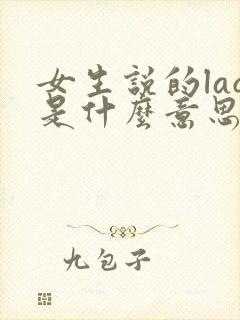 女生説的lac
是什麽意思
九包子